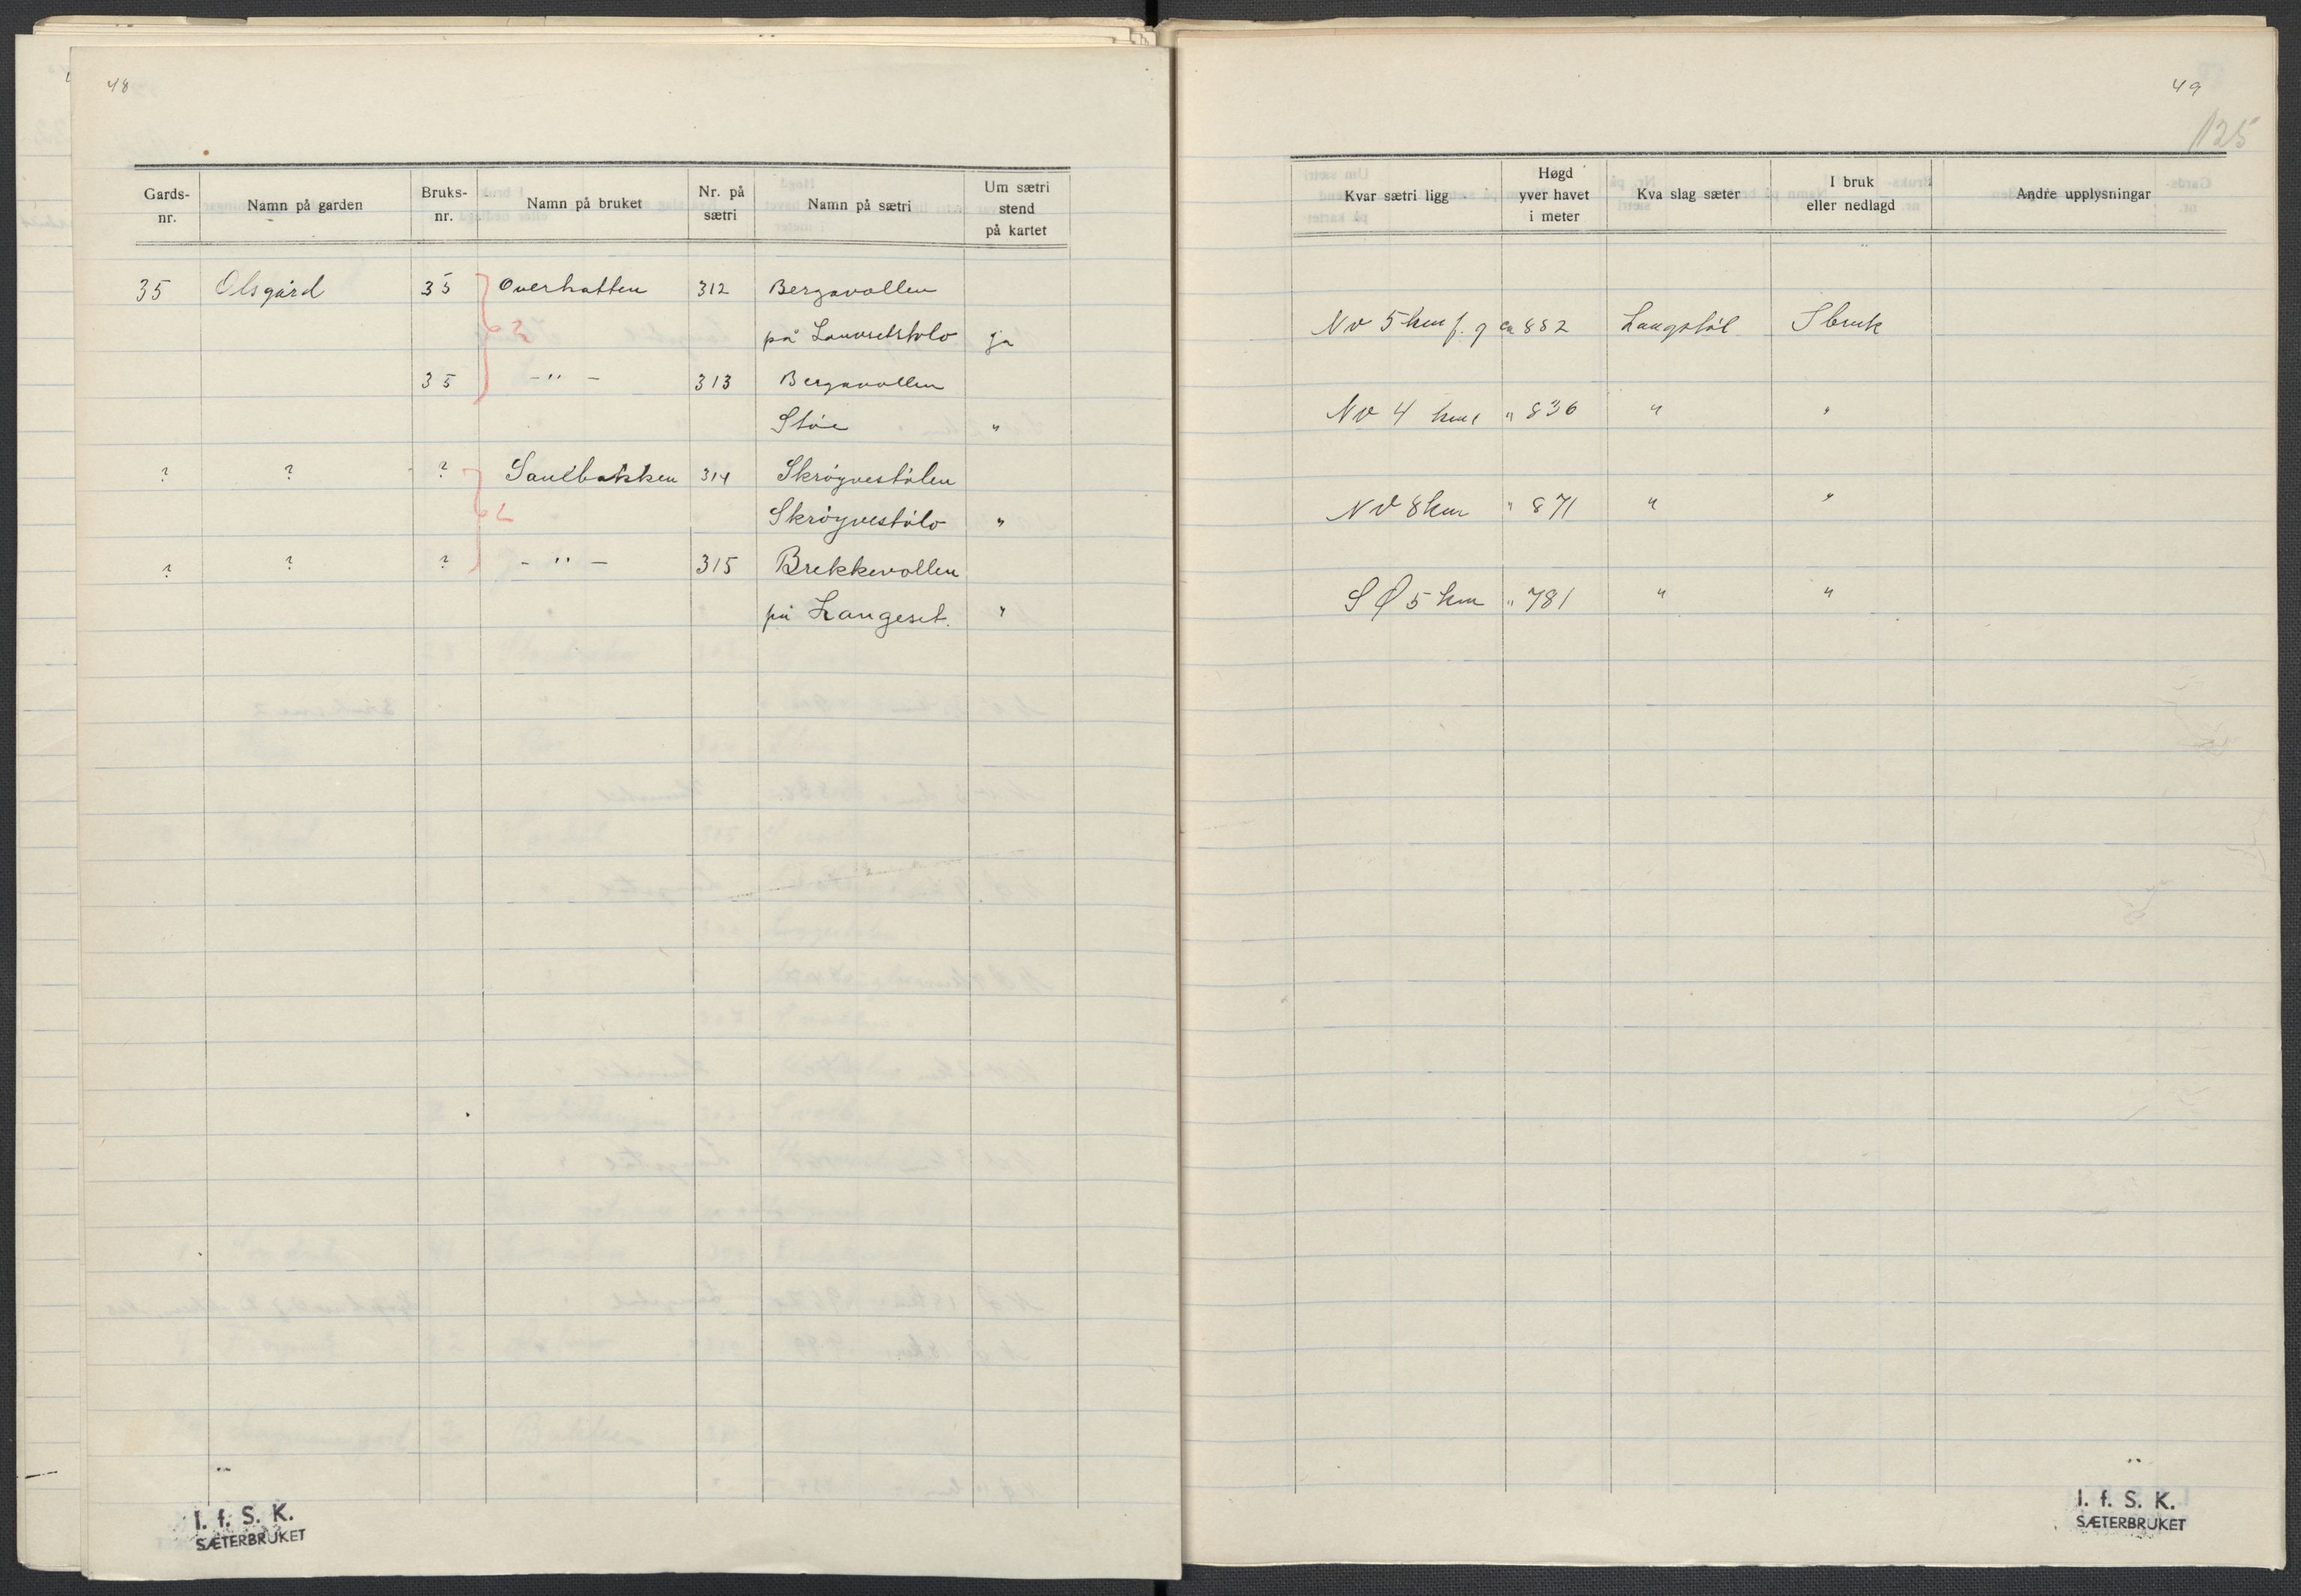 48
Gards-nr. Namn på garden Bruks-nr. Namn på bruket Nr. på sætri Namn på sætri Um sætri stend på kartet
35 Olsgård 35 Overhatten 312 Bergavollen
2 på Lauvsetstolo ja
35 -"- 313 Bergavollen
Støe "
? ? ? Sandbakken 314 Skrøyvestølen
2 Skrøyvestølo "
? ? ? -"- 315 Brekkevollen
på Langeset. "
I. f. S. K.
SÆTERBRUKET
49
125
Kvar sætri ligg Høgd yver havet i meter Kva slag sæter I bruk eller nedlagd Andre upplysningar
NV 5 km f. g ca 882 Langstøl I bruk
NV 4 km " 836 " "
NV 8 km " 871 " "
S Ø 5 km " 781 " "
I. f. S. K.
SÆTERBRUKET